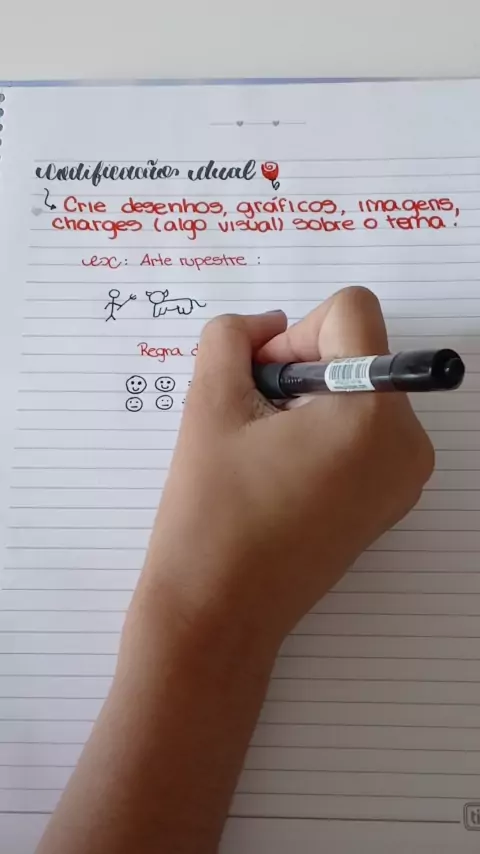 codificação dual
Crie desenhos, gráficos, imagens,
charges (algo visual) sobre o tema!
ex: Arte rupestre :
Regra d
ti